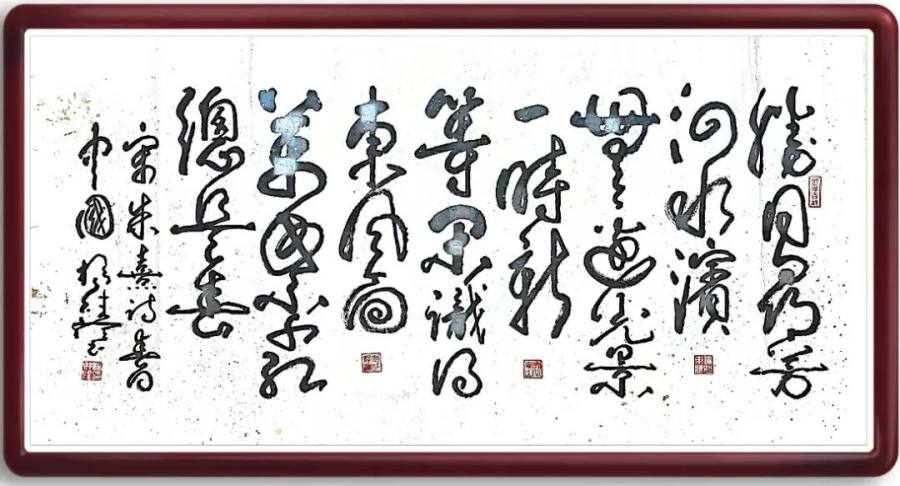 勝日尋芳
泗水濱
無邊光景
一時新
等閑識得
東風面
萬紫千紅
總是春
宋朱熹詩春日
中國